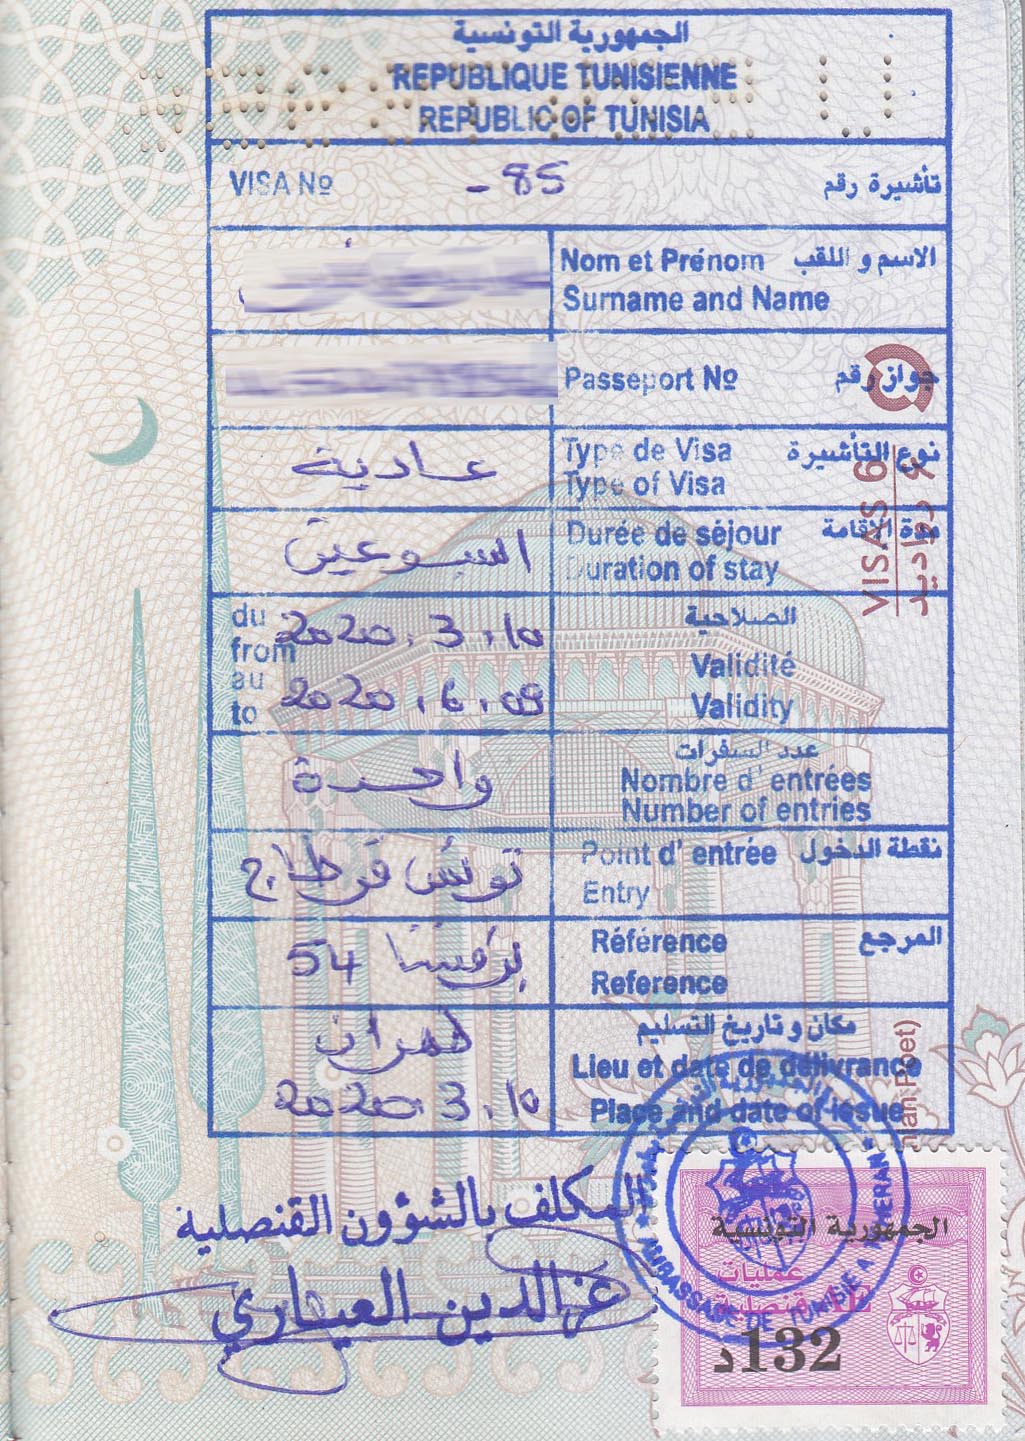 الجمهورية التونسية
REPUBLIQUE TUNISIENNE
REPUBLIC OF TUNISIA
VISA No - 85 تأشيرة رقم
Nom et Prénom الاسم و اللقب
Surname and Name
Passeport No جواز رقم
عادية Type de Visa نوع التأشيرة
Type of Visa
أسبوعين Durée de séjour مدة الاقامة
Duration of stay
VISAS 6
روادید ۶
du from 2020.3.10 الصلاحية
au to 2020.6.09 Validité
Validity
واحدة عدد السفرات
Nombre d'entrées
Number of entries
تونس قرطاج Point d'entrée نقطة الدخول
Entry
54 Référence المرجع
Reference
طهران مكان و تاريخ التسليم
Lieu et date de délivrance
2020.3.10 Place and date of issue
المكلف بالشؤون القنصلية
عز الدين العياري
AMBASSADE DE TUNISIE A TEHERAN
الجمهورية التونسية
عمليات
قنصلية
132د